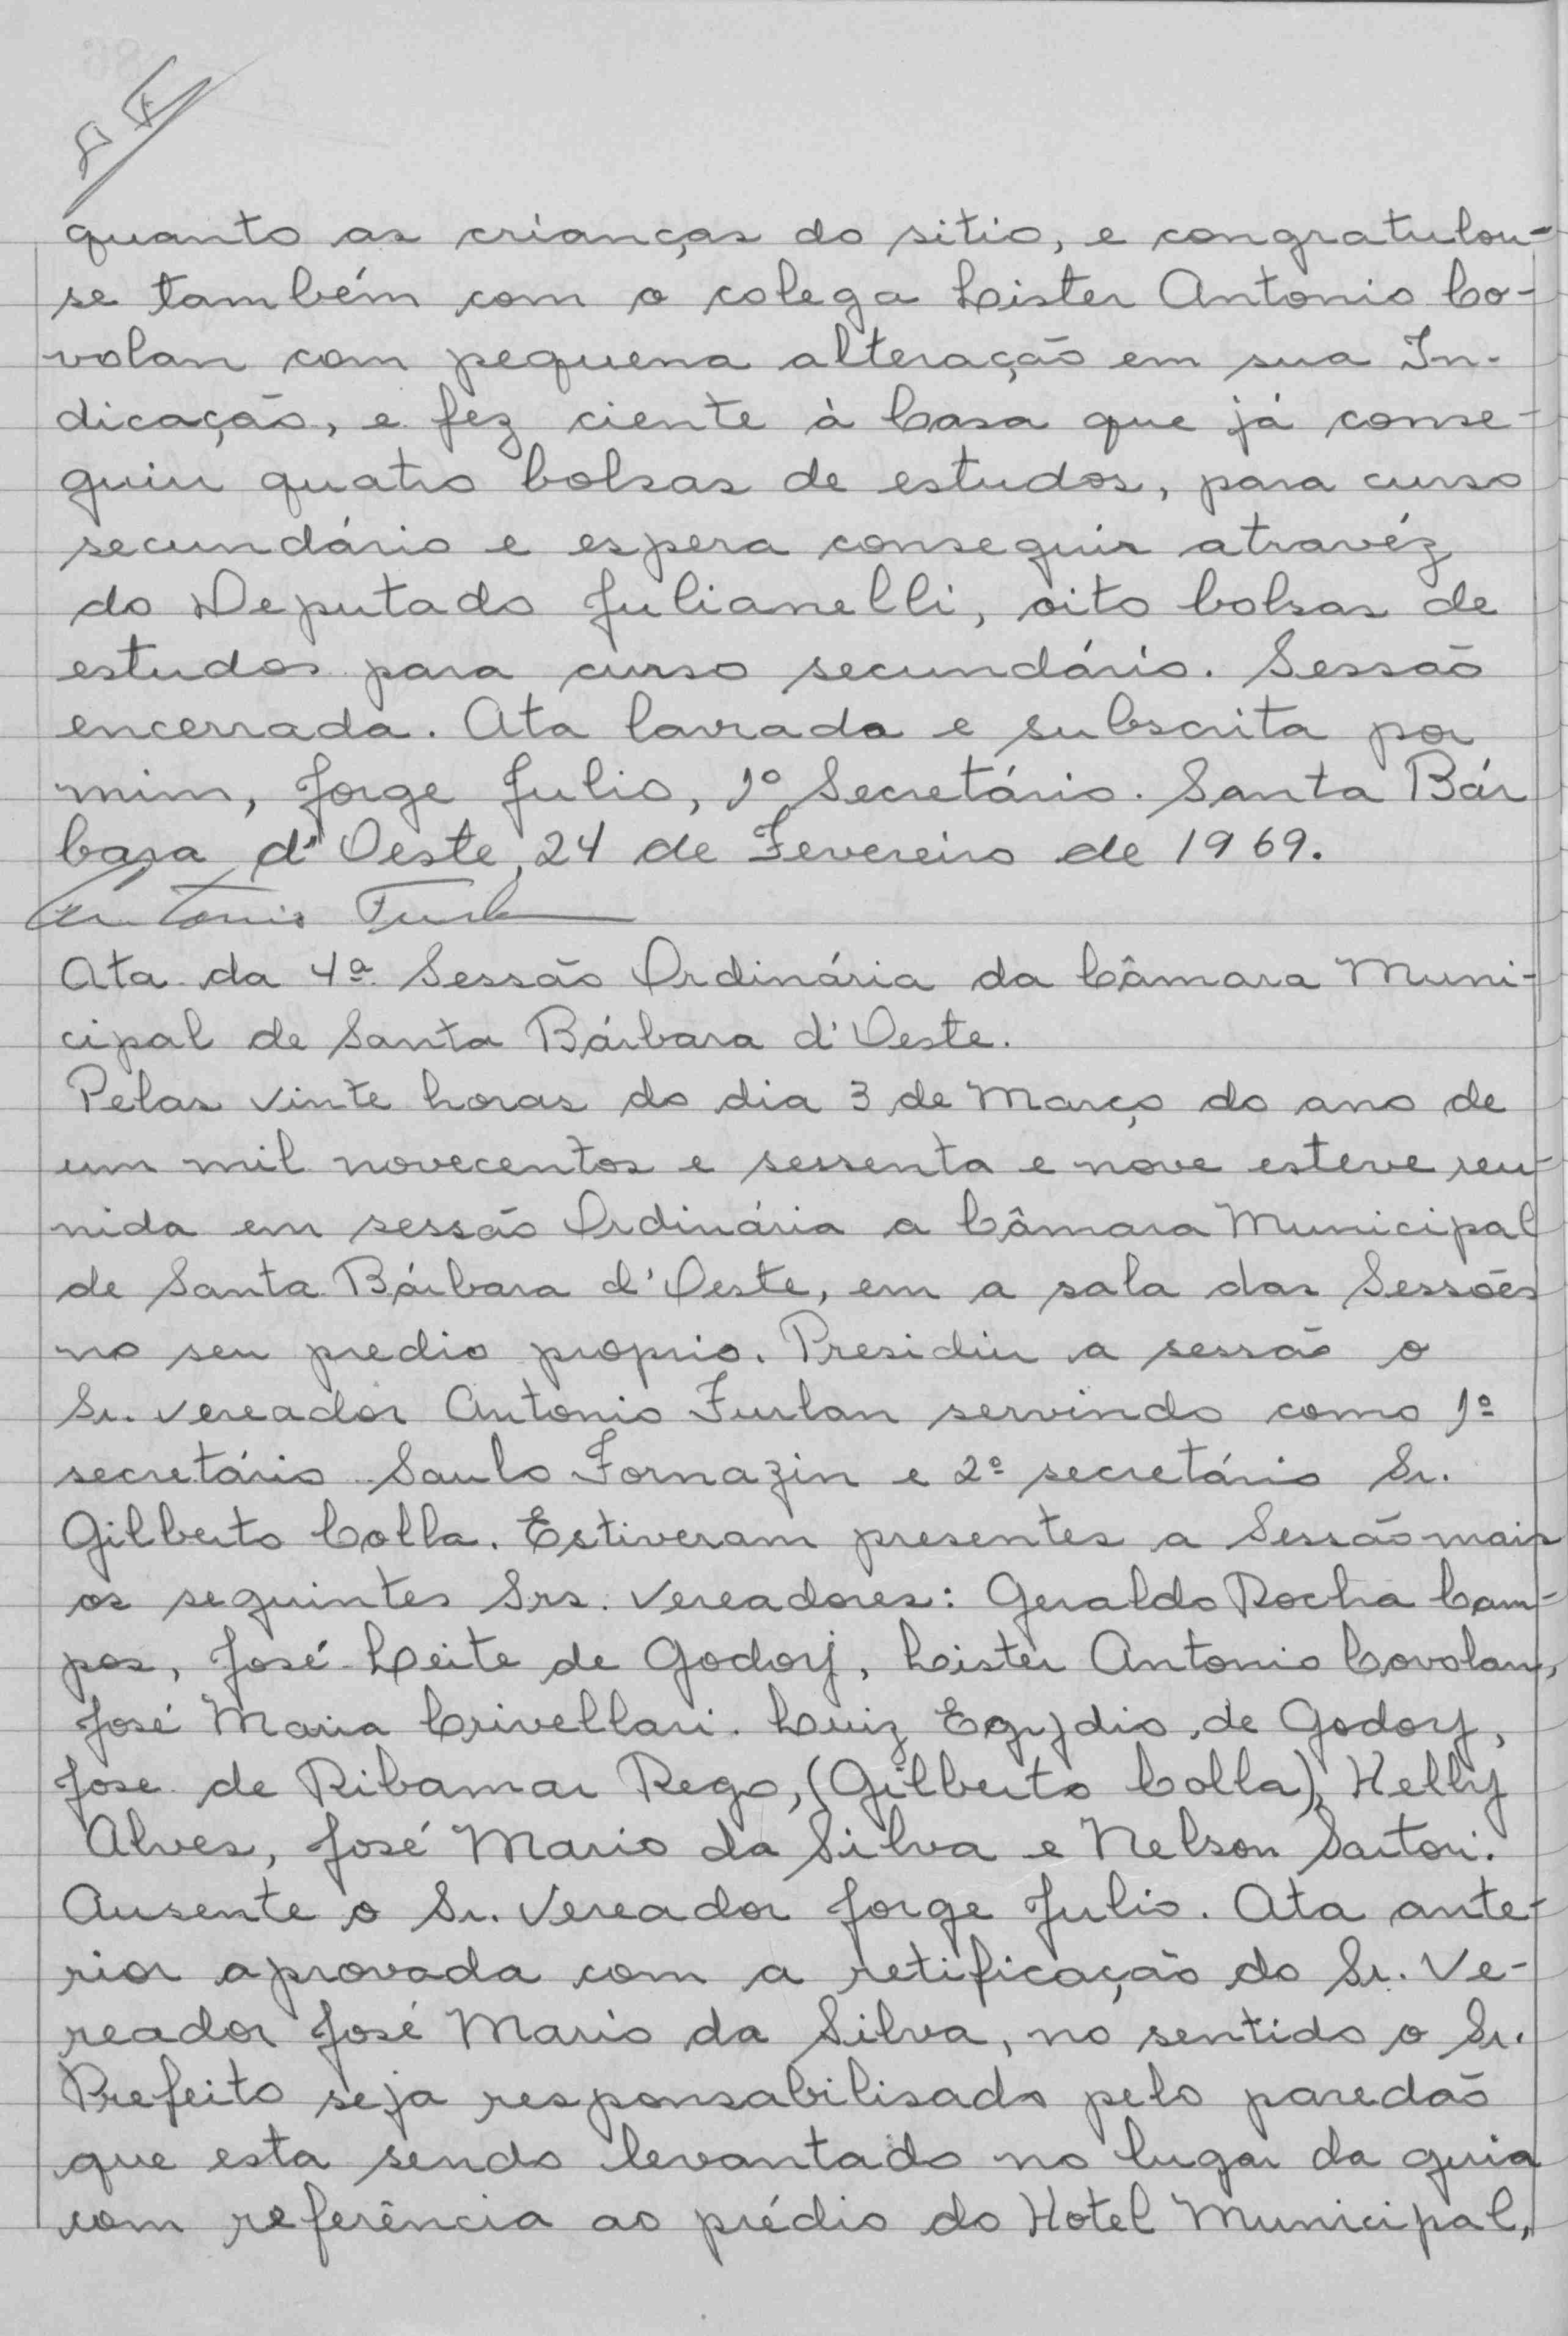 quanto as crianças do sitio, e congratulou-
se também com o colega Lister Antonio Co-
volan com pequena alteração em sua In-
dicação, e fez ciente à Casa que já conse-
guiu quatro bolsas de estudos, para curso
secundário e espera conseguir atravéz
do Deputado Julianelli, oito bolsas de
estudos para curso secundário. Sessão
encerrada. Ata lavrada e subscrita por
mim, Jorge Julio, 1º Secretário. Santa Bár
bara d'Oeste, 24 de Fevereiro de 1969.
Antonio Furlan
Ata da 4ª Sessão Ordinária da Câmara Muni-
cipal de Santa Bárbara d'Oeste.
Pelas vinte horas do dia 3 de Março do ano de
um mil novecentos e sessenta e nove esteve reu-
nida em sessão Ordinária a Câmara Municipal
de Santa Bárbara d'Oeste, em a sala das Sessões
no seu predio proprio. Presidiu a sessão o
Sr. vereador Antonio Furlan servindo como 1º
secretário Saulo Fornazin e 2º secretário Sr.
Gilberto Colla. Estiveram presentes a Sessão mais
os seguintes Srs. vereadores: Geraldo Rocha Cam-
pos, José Leite de Godoy, Lister Antonio Covolan,
José Maria Crivellari. Luiz Egydio de Godoy,
Jose de Ribamar Rego, (Gilberto Colla), Helly
Alves, José Mario da Silva e Nelson Sartori.
Ausente o Sr. Vereador Jorge Julio. Ata ante-
rior aprovada com a retificação do Sr. Ve-
reador José Mario da Silva, no sentido o Sr.
Prefeito seja responsabilisado pelo paredão
que esta sendo levantado no lugar da guia
com referência ao prédio do Hotel Municipal,